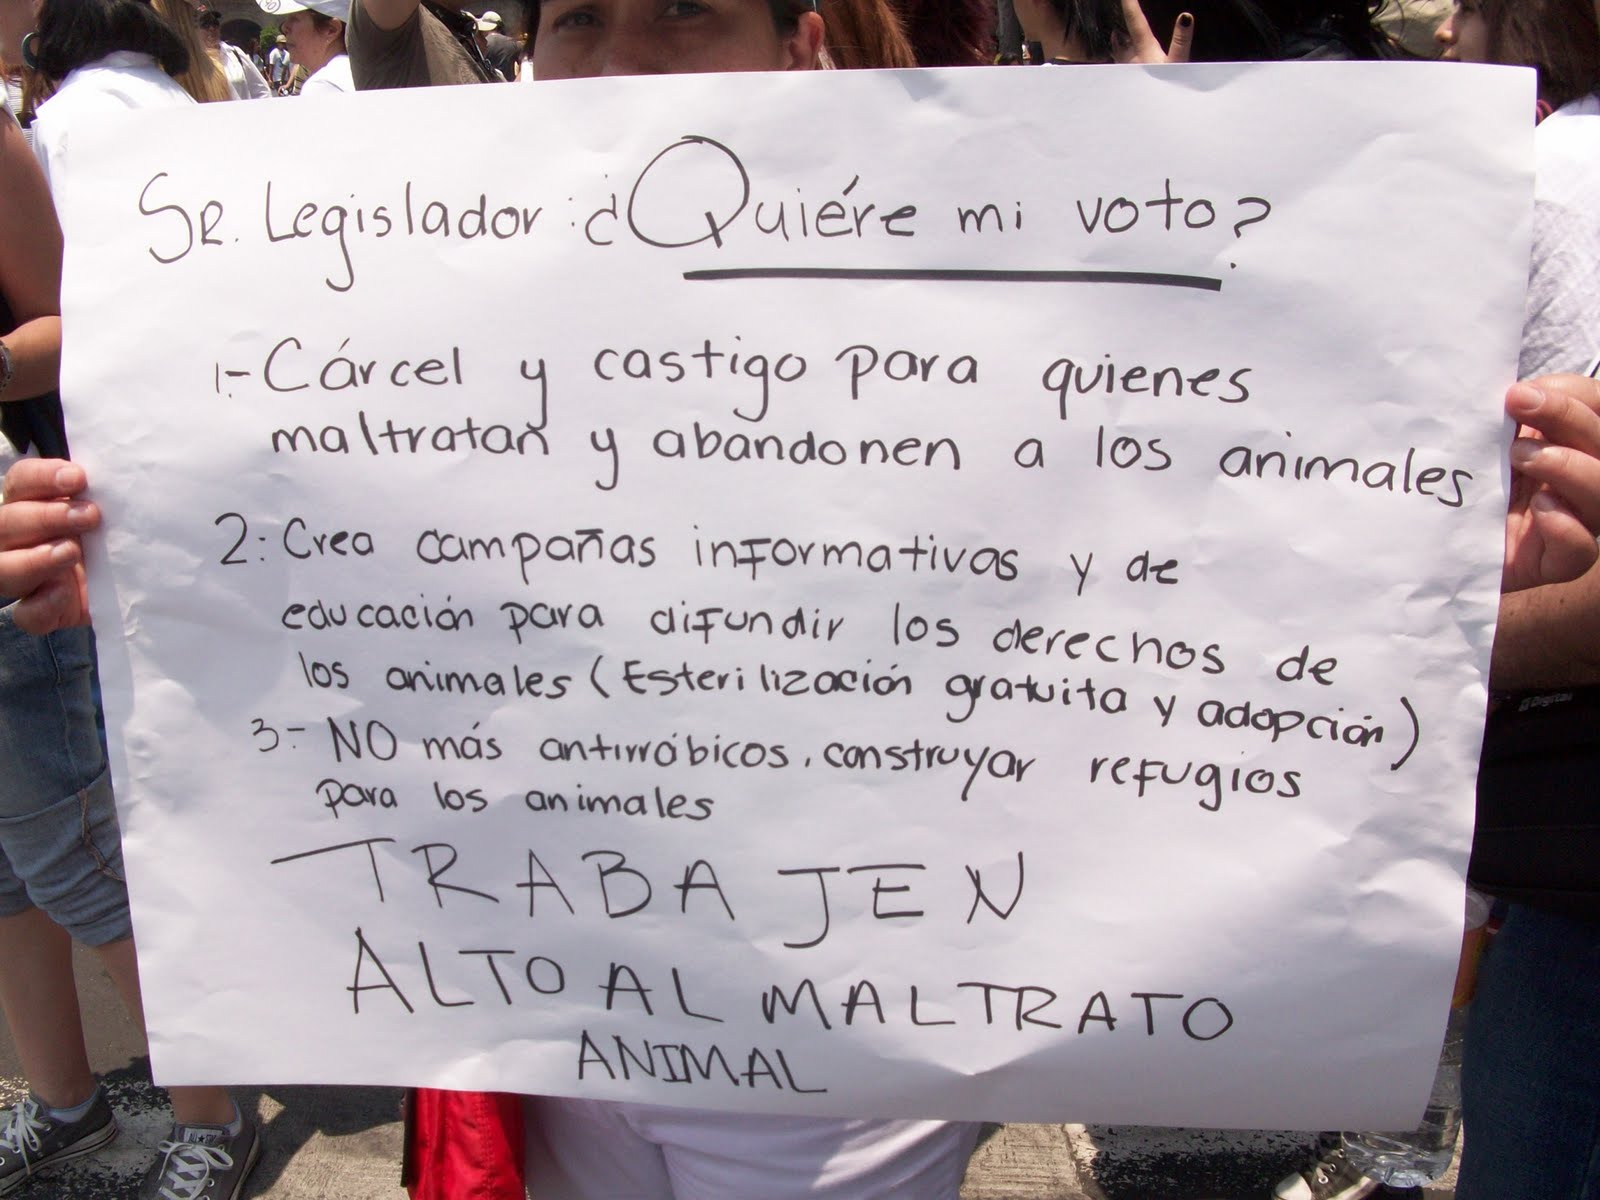 Sr. Legislador: ¿Quiére mi voto?
1.- Cárcel y castigo para quienes
maltratan y abandonen a los animales
2: Crea campañas informativas y de
educación para difundir los derechos de
los animales (Esterilización gratuita y adopción)
3- NO más antirrábicos, construyar refugios
para los animales
TRABAJEN
ALTO AL MALTRATO
ANIMAL
Digital
ALL STAR